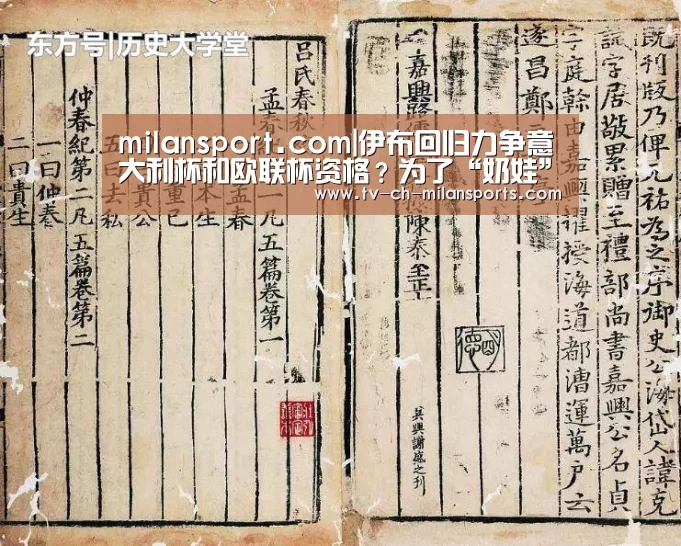 东方号|历史大学堂
milansport.com|伊布回归力争意
大利杯和欧联杯资格？为了“奶娃”
www.tv-ch-milansports.com
既刊版乃俾元祐為之序御史公海岱人諱克
誠字居敬累贈至禮部尚書嘉興公名貞
字庭幹由嘉興擢授海道都漕運萬戶云
遂昌鄭
嘉興路儒 陳泰至正
吳興謝盛之刊
呂氏春秋
孟春 一凡五篇卷第一
孟春
本生
重己
貴公
五曰去私
仲春紀第二凡五篇卷第二
一曰仲春
二曰貴生